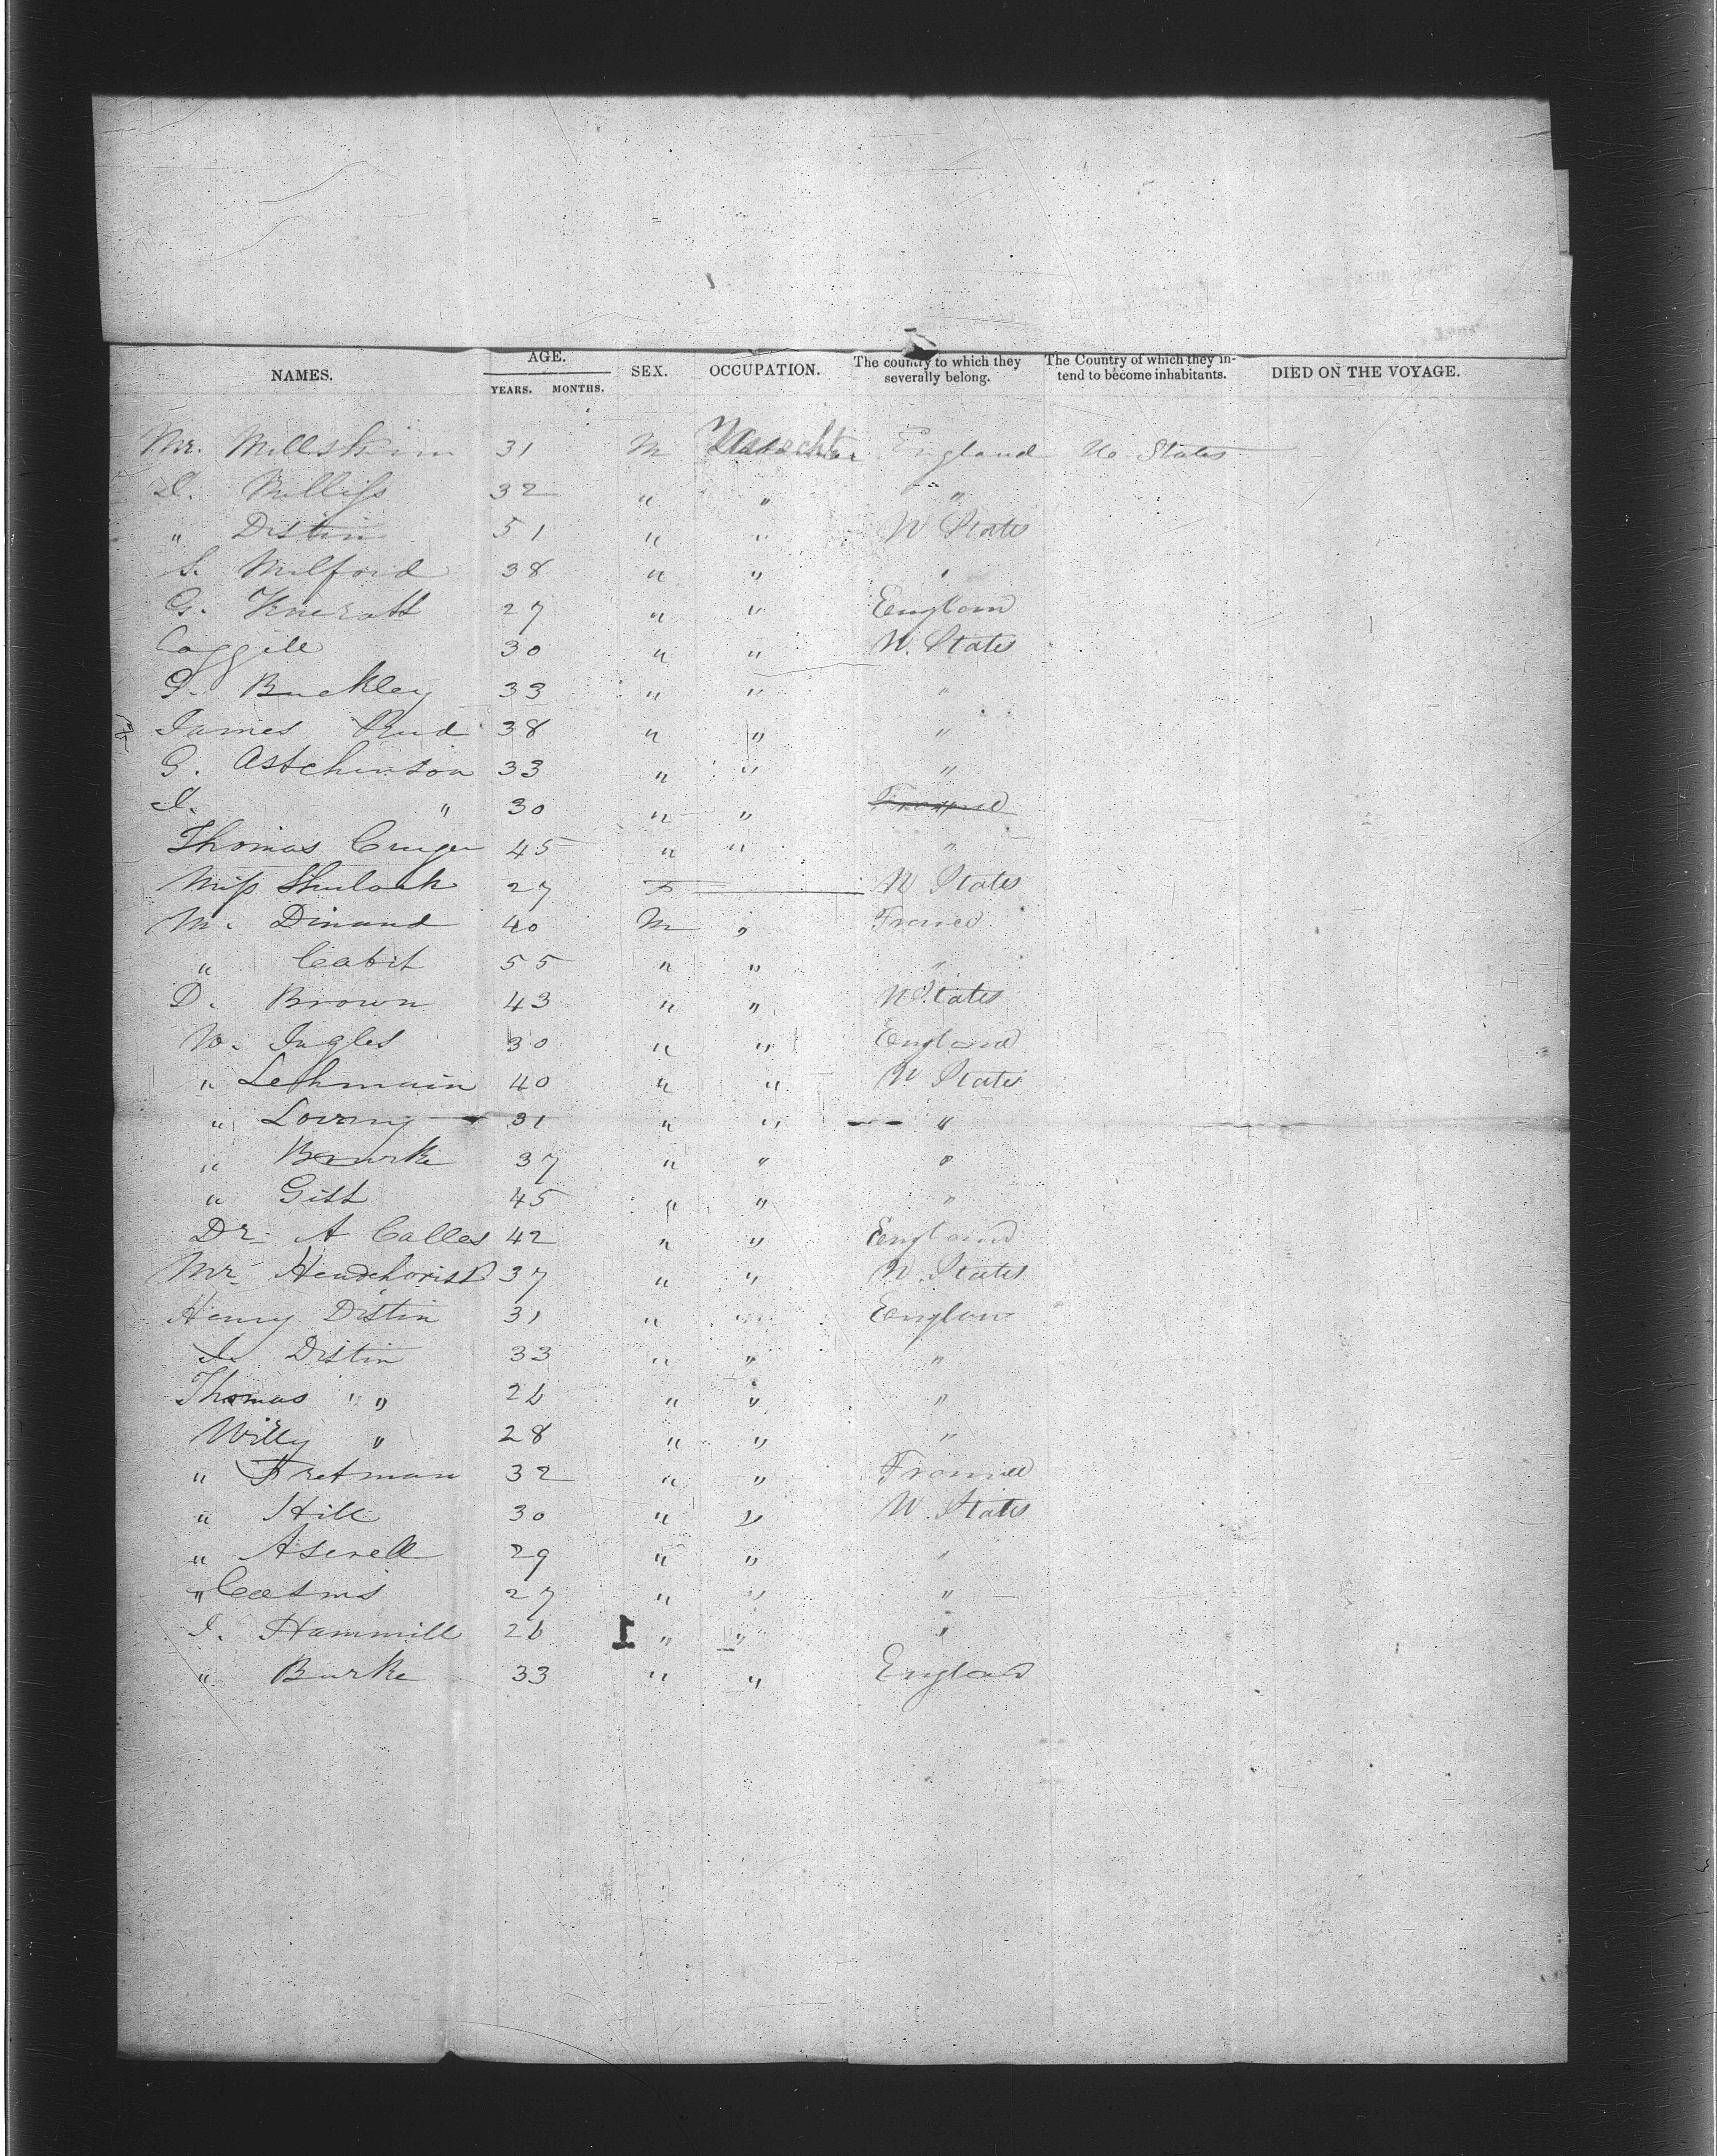 NAMES. AGE. YEARS. MONTHS. SEX. OCCUPATION. The country to which they severally belong. The Country of which they intend to become inhabitants. DIED ON THE VOYAGE.
Mr. 31 M England Uo States
D. Milliss 32 " " "
" Distin 51 " " U States
S. Milford 38 " " "
G. 27 " " England
Coggill 30 " " U. States
I. Buckley 33 " " "
James 38 " " "
G. Astchinson 33 " " "
I. " 30 " "
Thomas Cruger 45 " " "
Miss 27 F U States
M. Dinand 40 M " France
" Cabit 55 " " "
D. Brown 43 " " U States
W. Ingles 30 " " England
" Lechmain 40 " " U States
" Loving 31 " " "
" Bourke 37 " " "
" Gitt 45 " " "
Dr. A Calles 42 " " England
Mr. 37 " " U. States
Henry Distin 31 " " England
I. Distin 33 " " "
Thomas " " 26 " " "
Willy " 28 " " "
" Fretman 32 " " France
" Hill 30 " " U. States
" Aserell 29 " " "
" 27 " " "
I. Hammill 26 " " "
" Burke 33 " " England